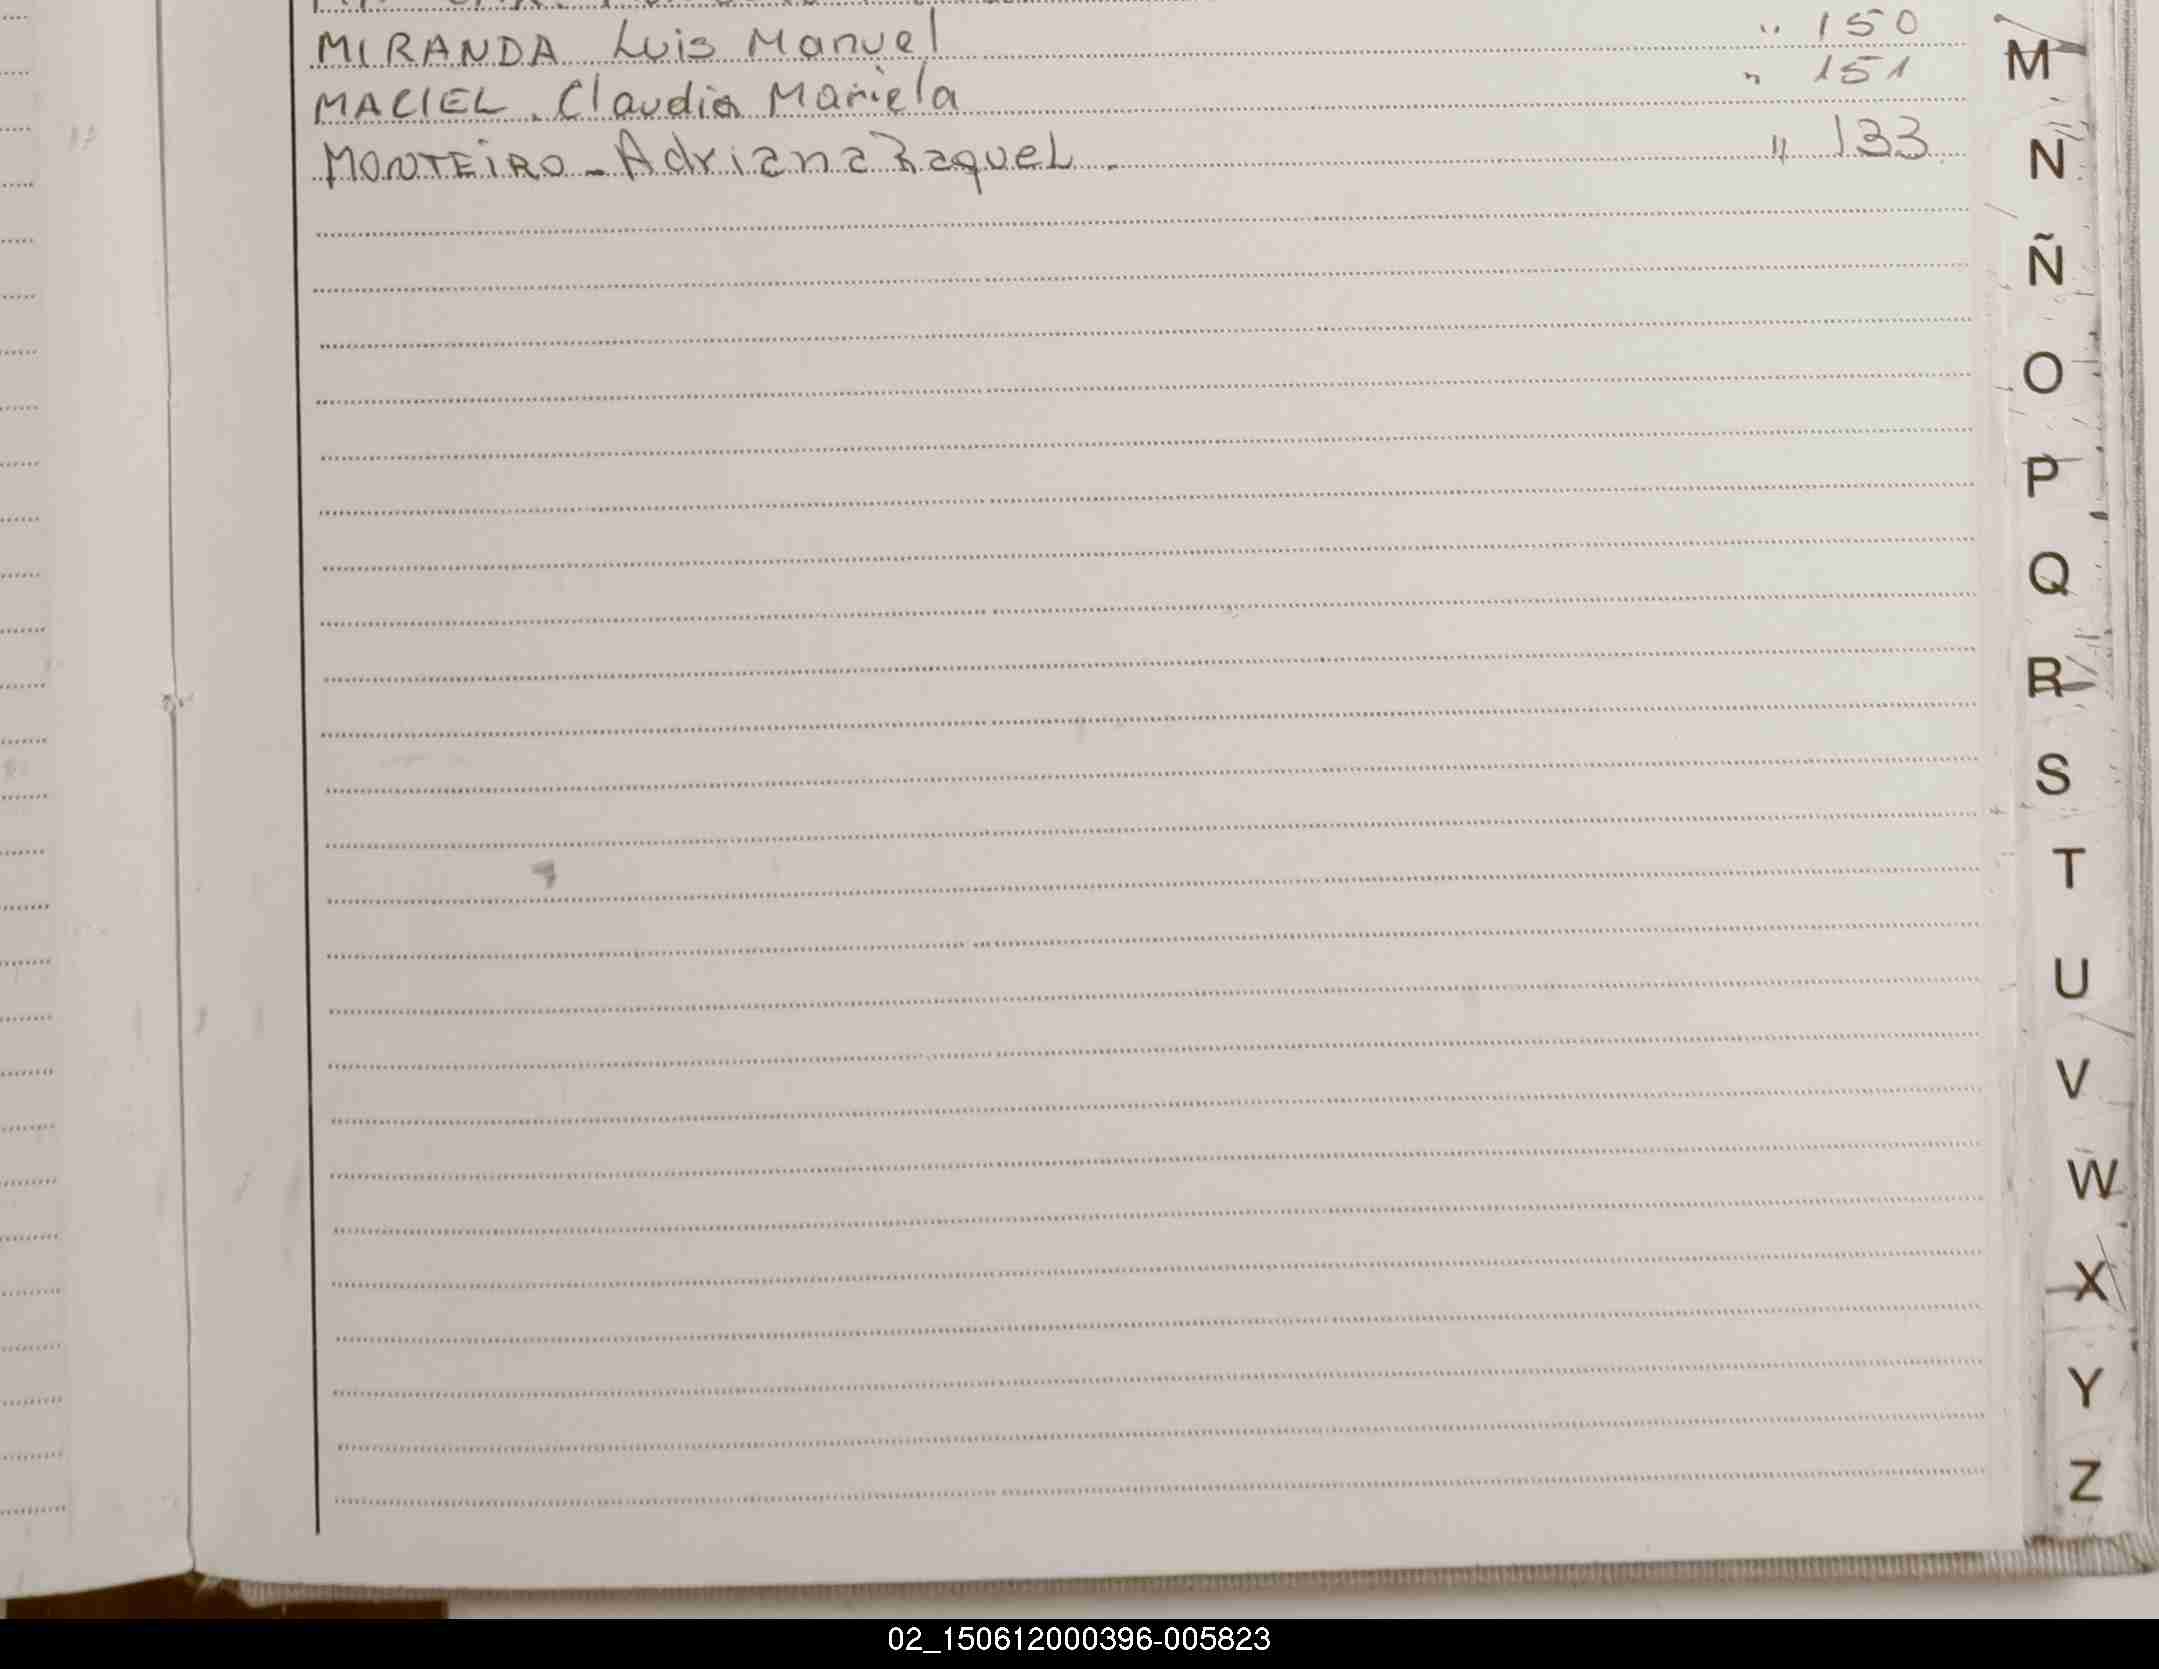 MIRANDA Luis Manuel " 150
MACIEL. Claudia Mariela " 151
MONTEIRO - Adriana Raquel. " 133
M
N
Ñ
O
P
Q
R
S
T
U
V
W
X
Y
Z
02_150612000396-005823